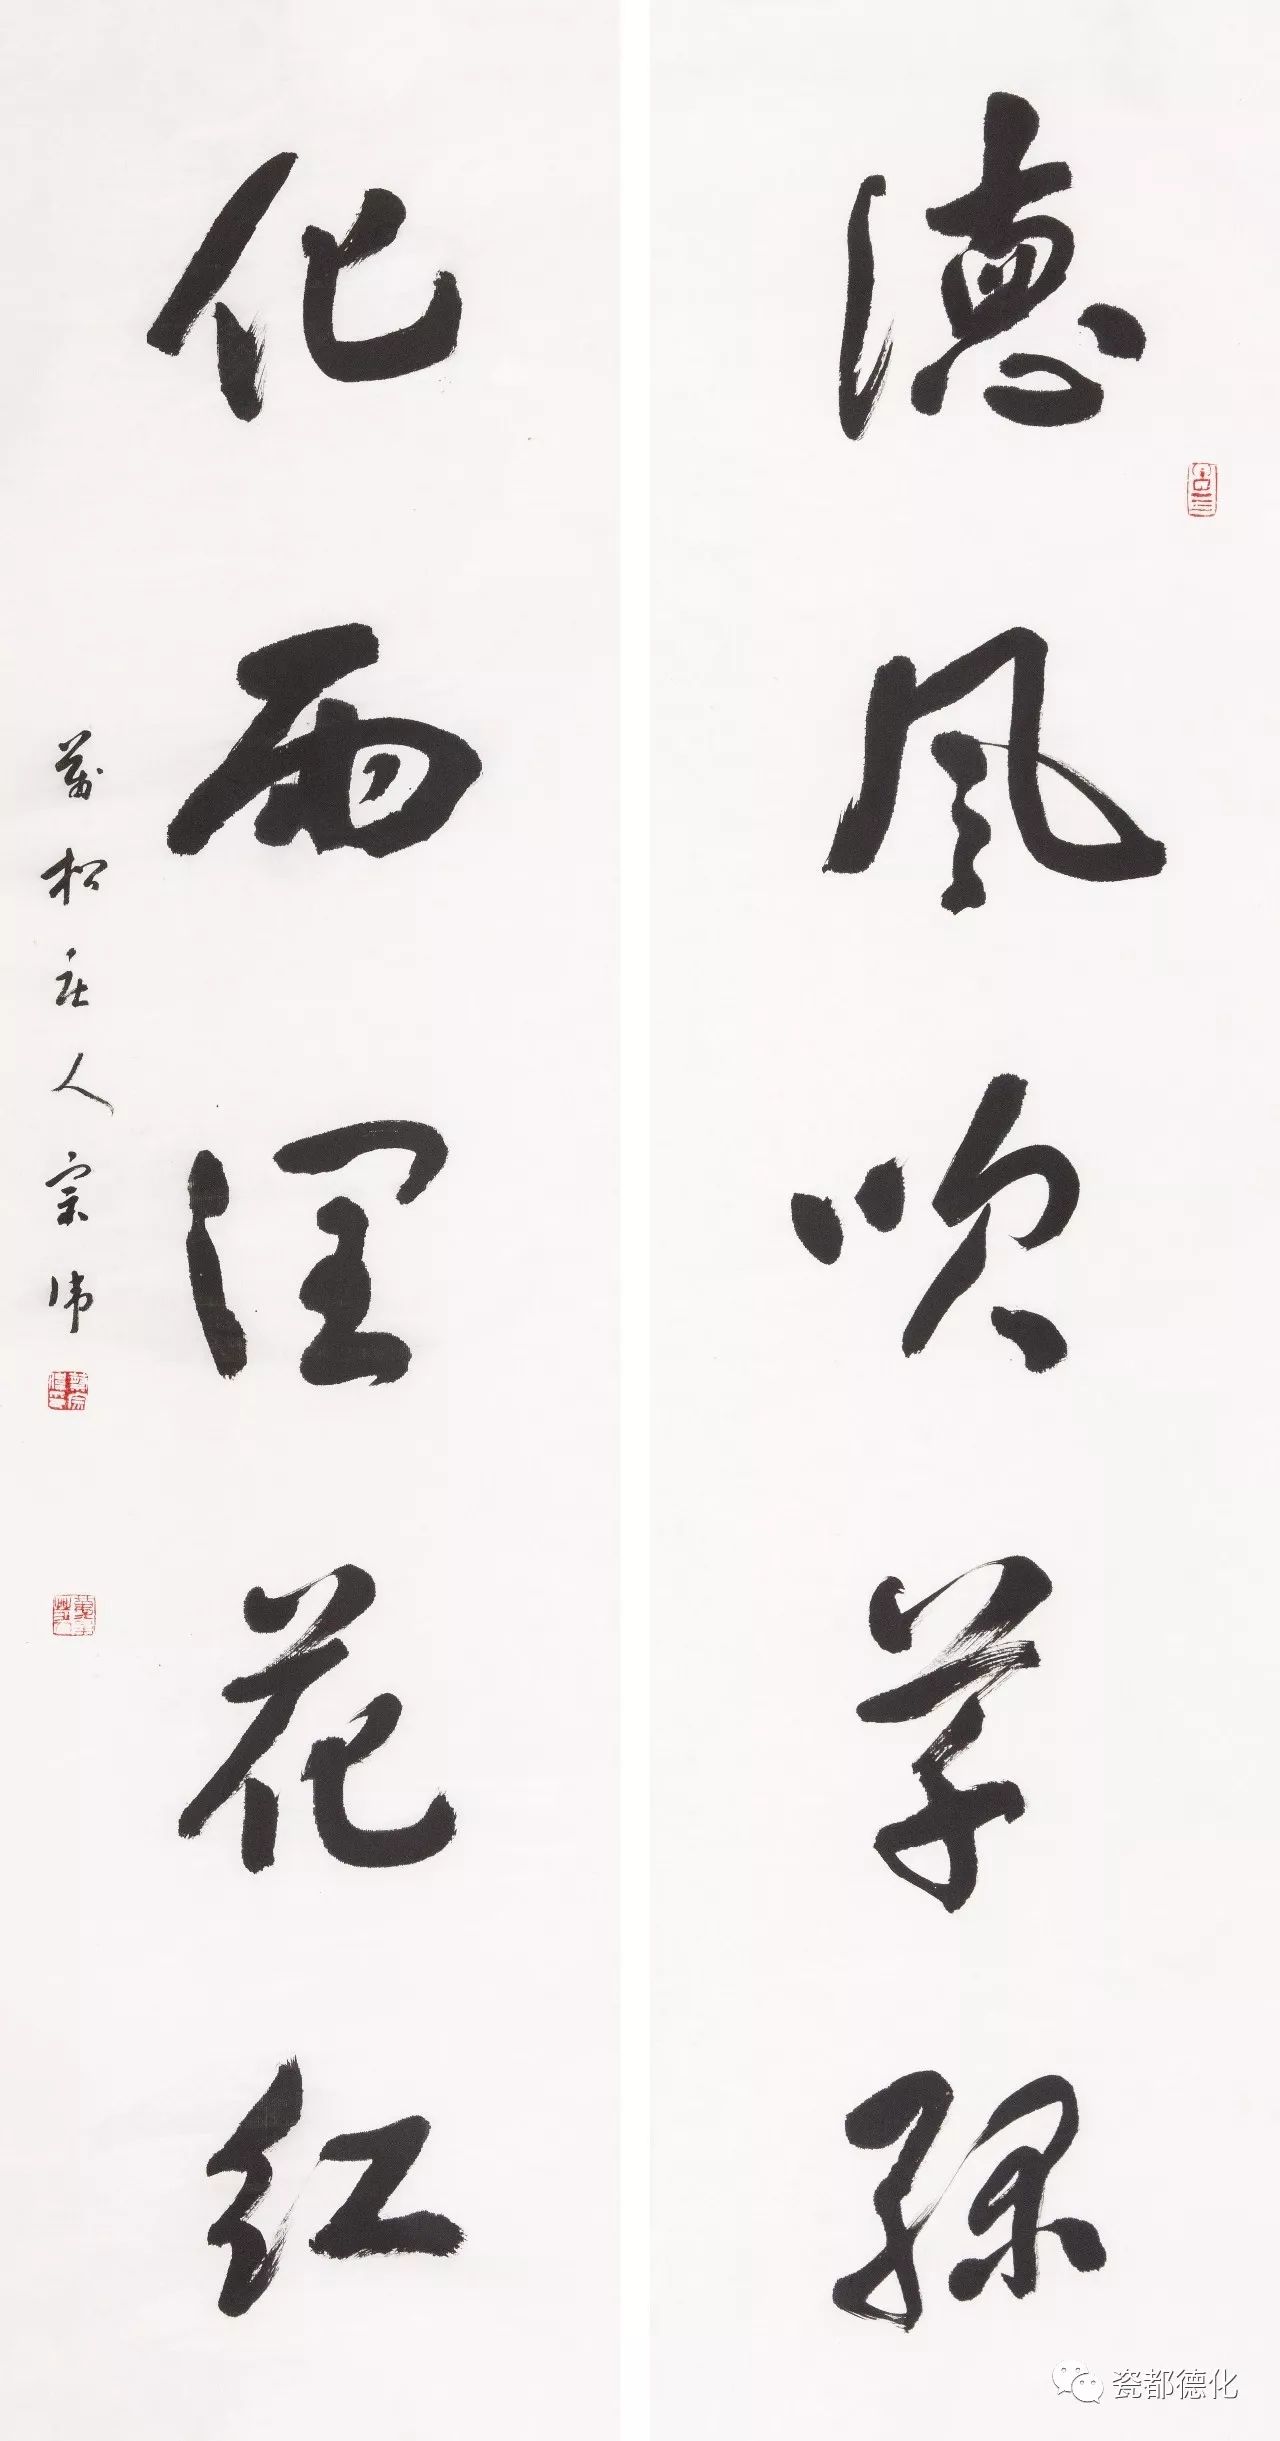 德风吹草绿
化雨润花红
万松庄人宗伟
瓷都德化